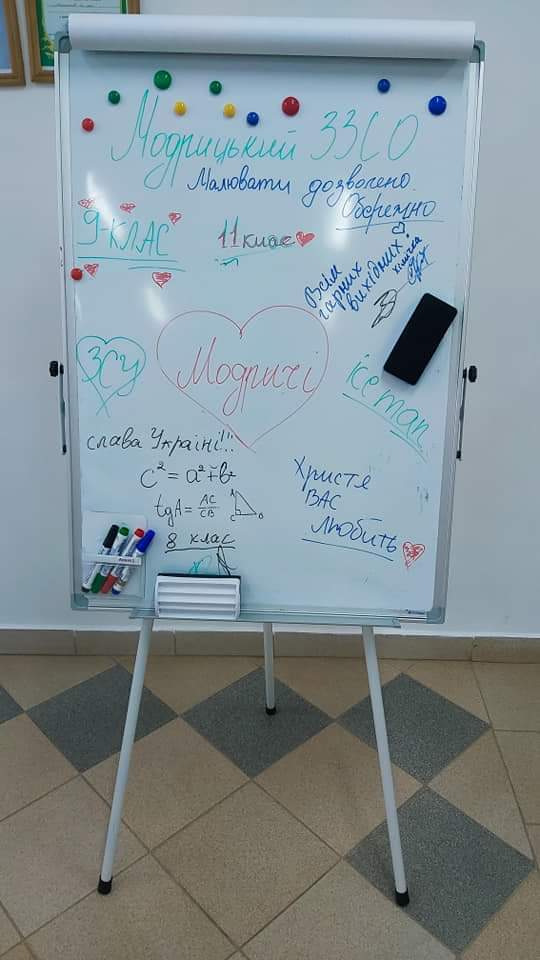 Модрицький ЗЗСО
Малювати дозволено.
Обережно
9-КЛАС
11 клас
Всім
гарних
вихідних!
ЗСУ
Модричі
ice man
слава Україні!!!
c² = a² + b²
tgA = AC/CB
A
C
8 клас
Христя
ВАС
Любить